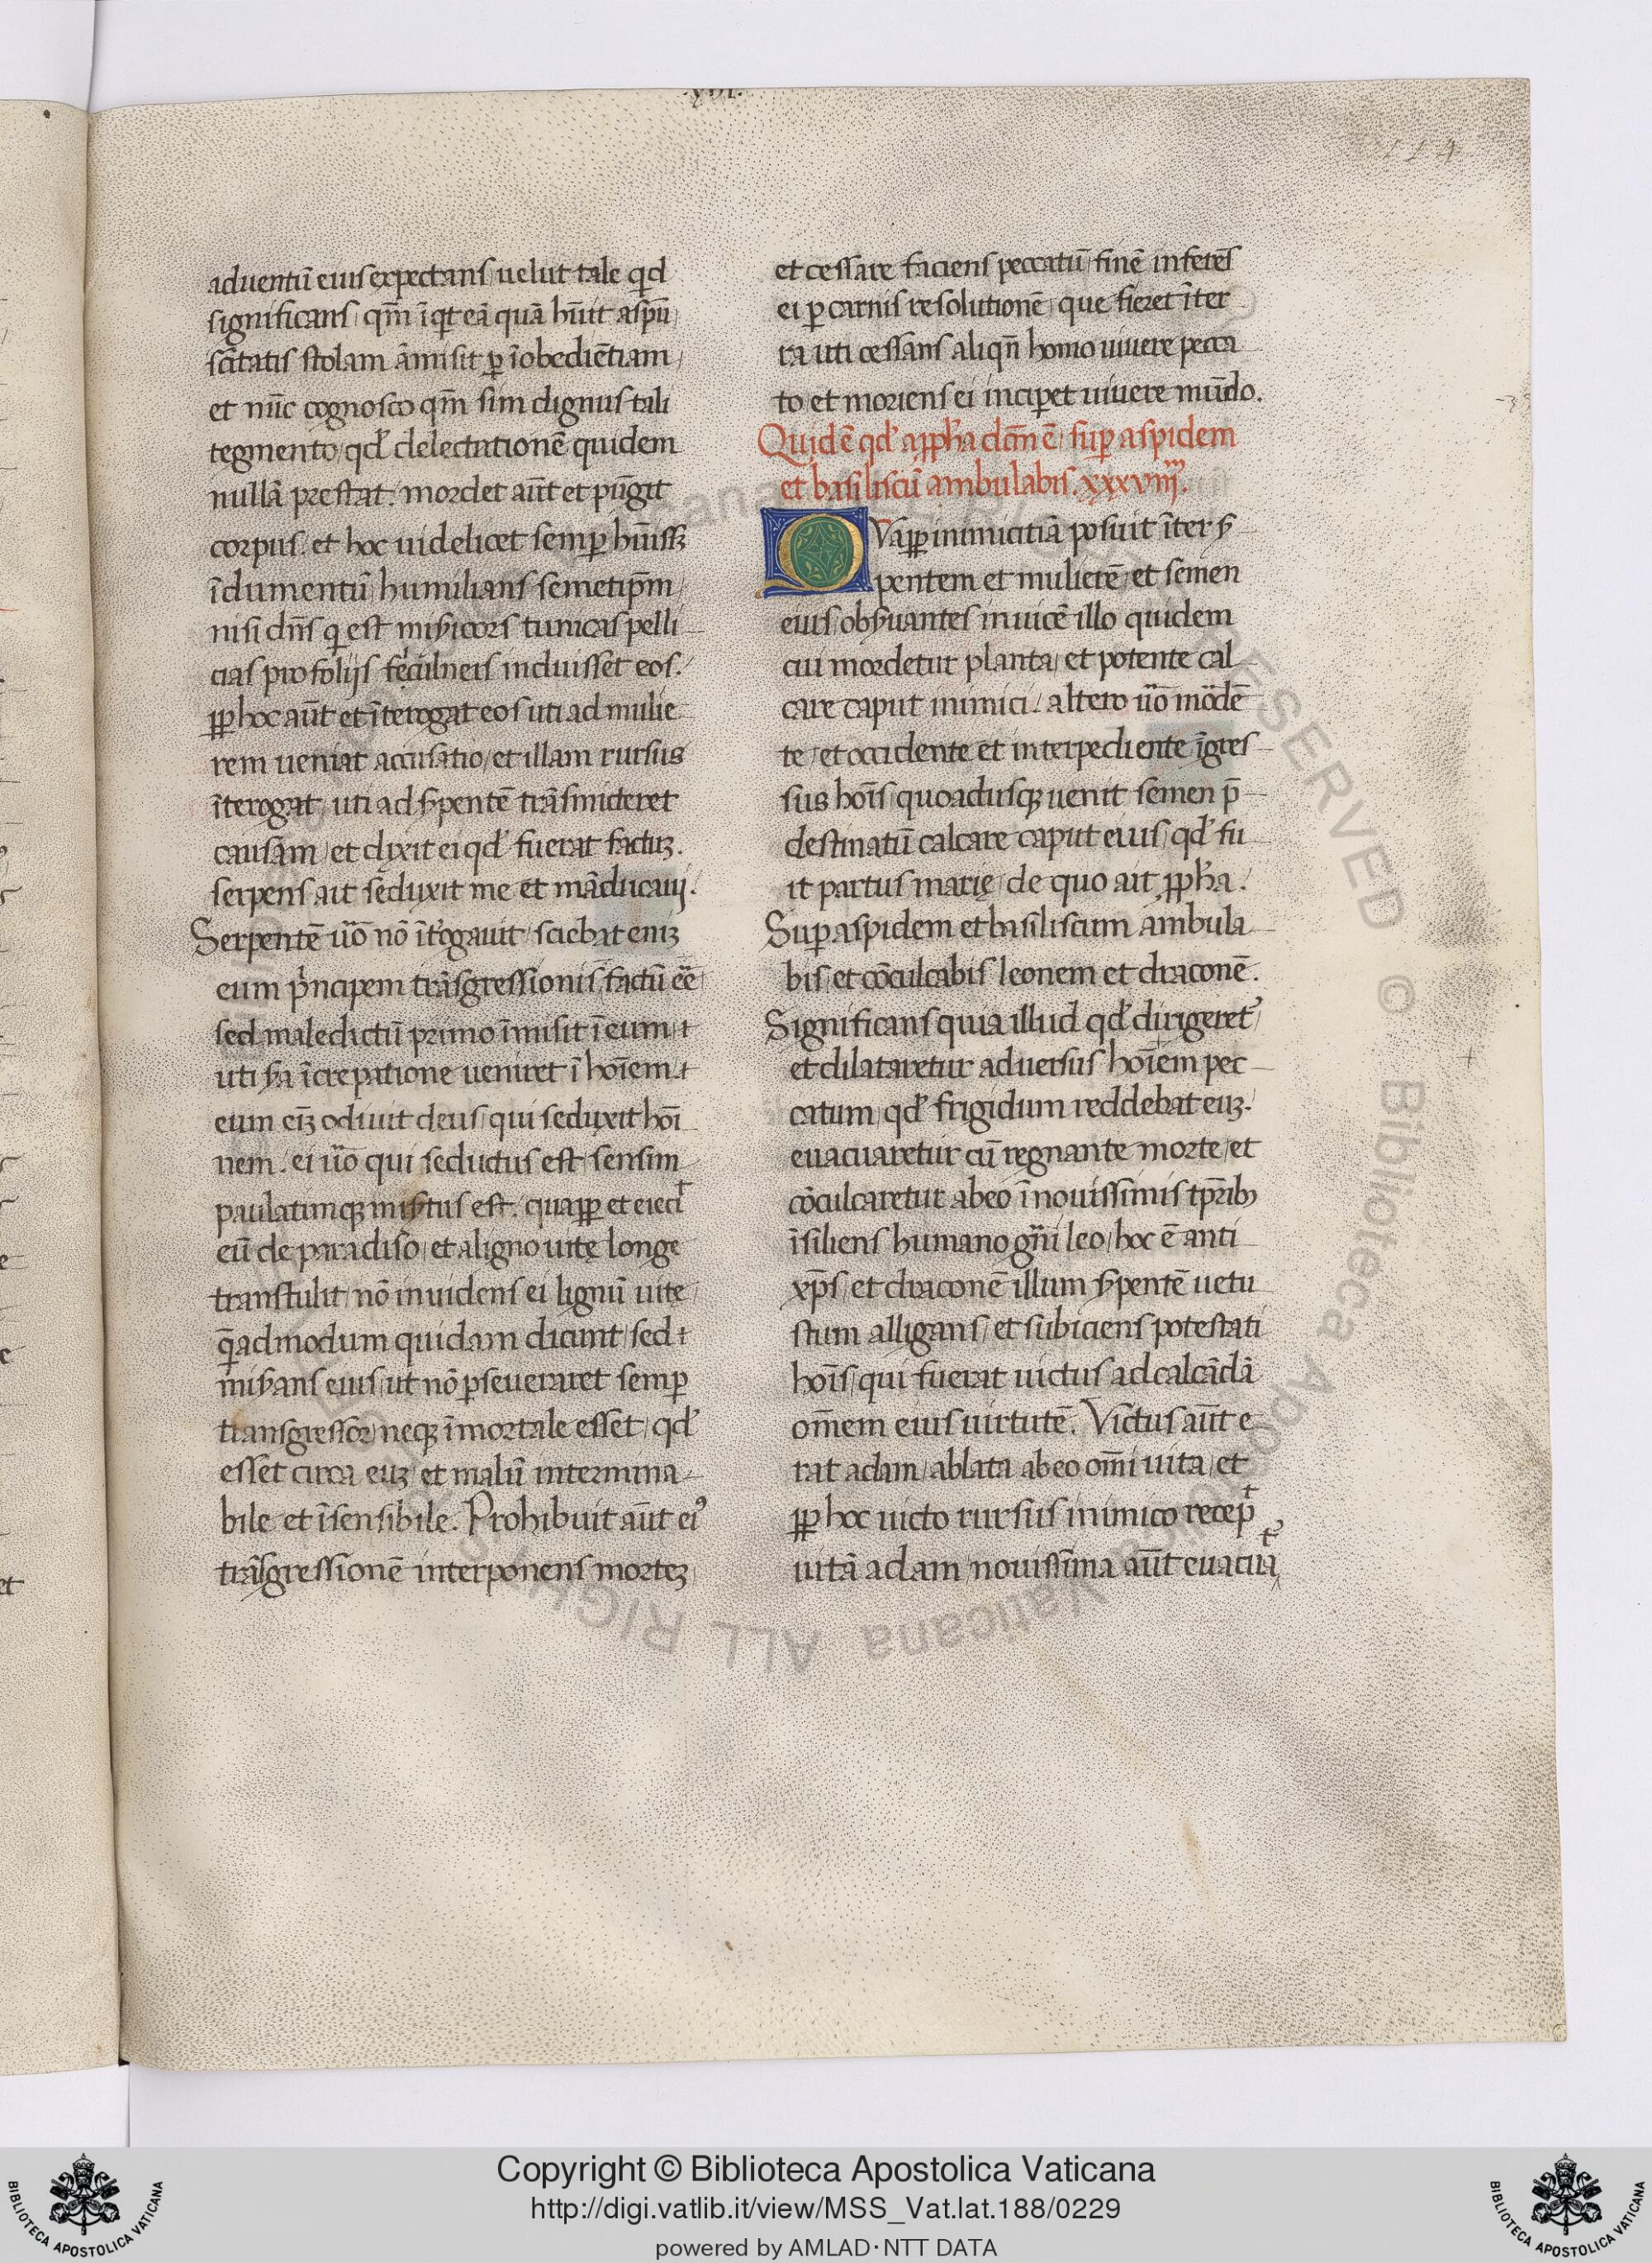 .xvi.
114
aduentū eius expectans / uelut tale qd
significans / qm̄ īqt eā quā hūit a spū
scītatis stolam āmisit p īobediētiam /
et nūc cognosco qm̄ sim dignus tali
tegmento / qd' delectationē quidem
nullā prestat . mordet aūt et pūgit
corpus . et hoc uidelicet semp hūissꝫ
īdumentū / humilians semetipm̄ /
nisi dn̄s q est misicors tunicas pelli
cias pro folijs feculneis induisset eos .
pp hoc aūt et īterogat eos uti ad mulie
rem ueniat accusatio / et illam rursus
īterogat / uti ad spentē trāsmideret
causam / et dixit ei qd' fuerat factuꝫ .
serpens ait seduxit me et māducaui .
Serpentē uō nō īt'ogauit / sciebat eniꝫ
eum p'ncipem trāsgressionis factū eē
sed maledictū primo īmisit ī eum ⁊
uti sa īcrepatione ueniret ī hoīem ⁊
eum eīꝫ odiuit deus / qui seduxit hoī
nem . ei uō qui seductus est / sensim
paulatimqꝫ misertus est . quapp et eiecit
eū de paradiso / et a ligno uitę longe
transtulit / nō inuidens ei lignū uite /
q̄admodum quidam dicunt / sed ⁊
misans eius / ut nō pseueraret semp
transgressor / neqꝫ īmortale esset / qd'
esset circa euꝫ / et malū intermina
bile et īsensibile . Prohibuit aūt ei'
trāsgressionē interponens morteꝫ /
et cessare faciens peccatū / finē inferēs
ei p carnis resolutionē / que fieret īter
ra uti cessans aliqn̄ homo uiuere pecca
to / et moriens ei incipet uiuere mūdo .
Quid ē qd' a ppha dcm̄ ē / sup aspidem
et basiliscū ambulabis . xxxviij .
QVapp inimicitiā posuit īter s
pentem et mulierē / et semen
eius / obsuantes inuicē illo quidem
cui mordetur planta / et potente cal
care caput inimici . altero uō mōdē
te / et occidente et interpediente īgres
sus hoīs / quoadusqꝫ uenit semen p̄
destinatū calcare caput eius / qd' fu
it partus marię / de quo ait ppha .
Sup aspidem et basiliscum ambula
bis / et cōculcabis leonem et draconē .
Significans quia illud qd' dirigeret' /
et dilataretur aduersus hoīem pec
catum / qd' frigidum reddebat euꝫ .
euacuaretur cū regnante morte / et
cōculcaretur ab eo ī nouissimis tp̄ribꝫ
īsiliens humano gn̄i leo / hoc ē anti
xp̄s / et draconē illum spentē uetu
stum alligans / et subiciens potestati
hoīs / qui fuerat uictus ad calcādā
om̄em eius uirtutē . Victus aūt e
rat adam / ablata ab eo om̄i uita / et
pp hoc uicto rursus inimico recepit
uitā adam / nouissīma aūt euacuat'
BIBLIOTECA APOSTOLICA VATICANA
Copyright © Biblioteca Apostolica Vaticana
http://digi.vatlib.it/view/MSS_Vat.lat.188/0229
powered by AMLAD·NTT DATA
BIBLIOTECA APOSTOLICA VATICANA